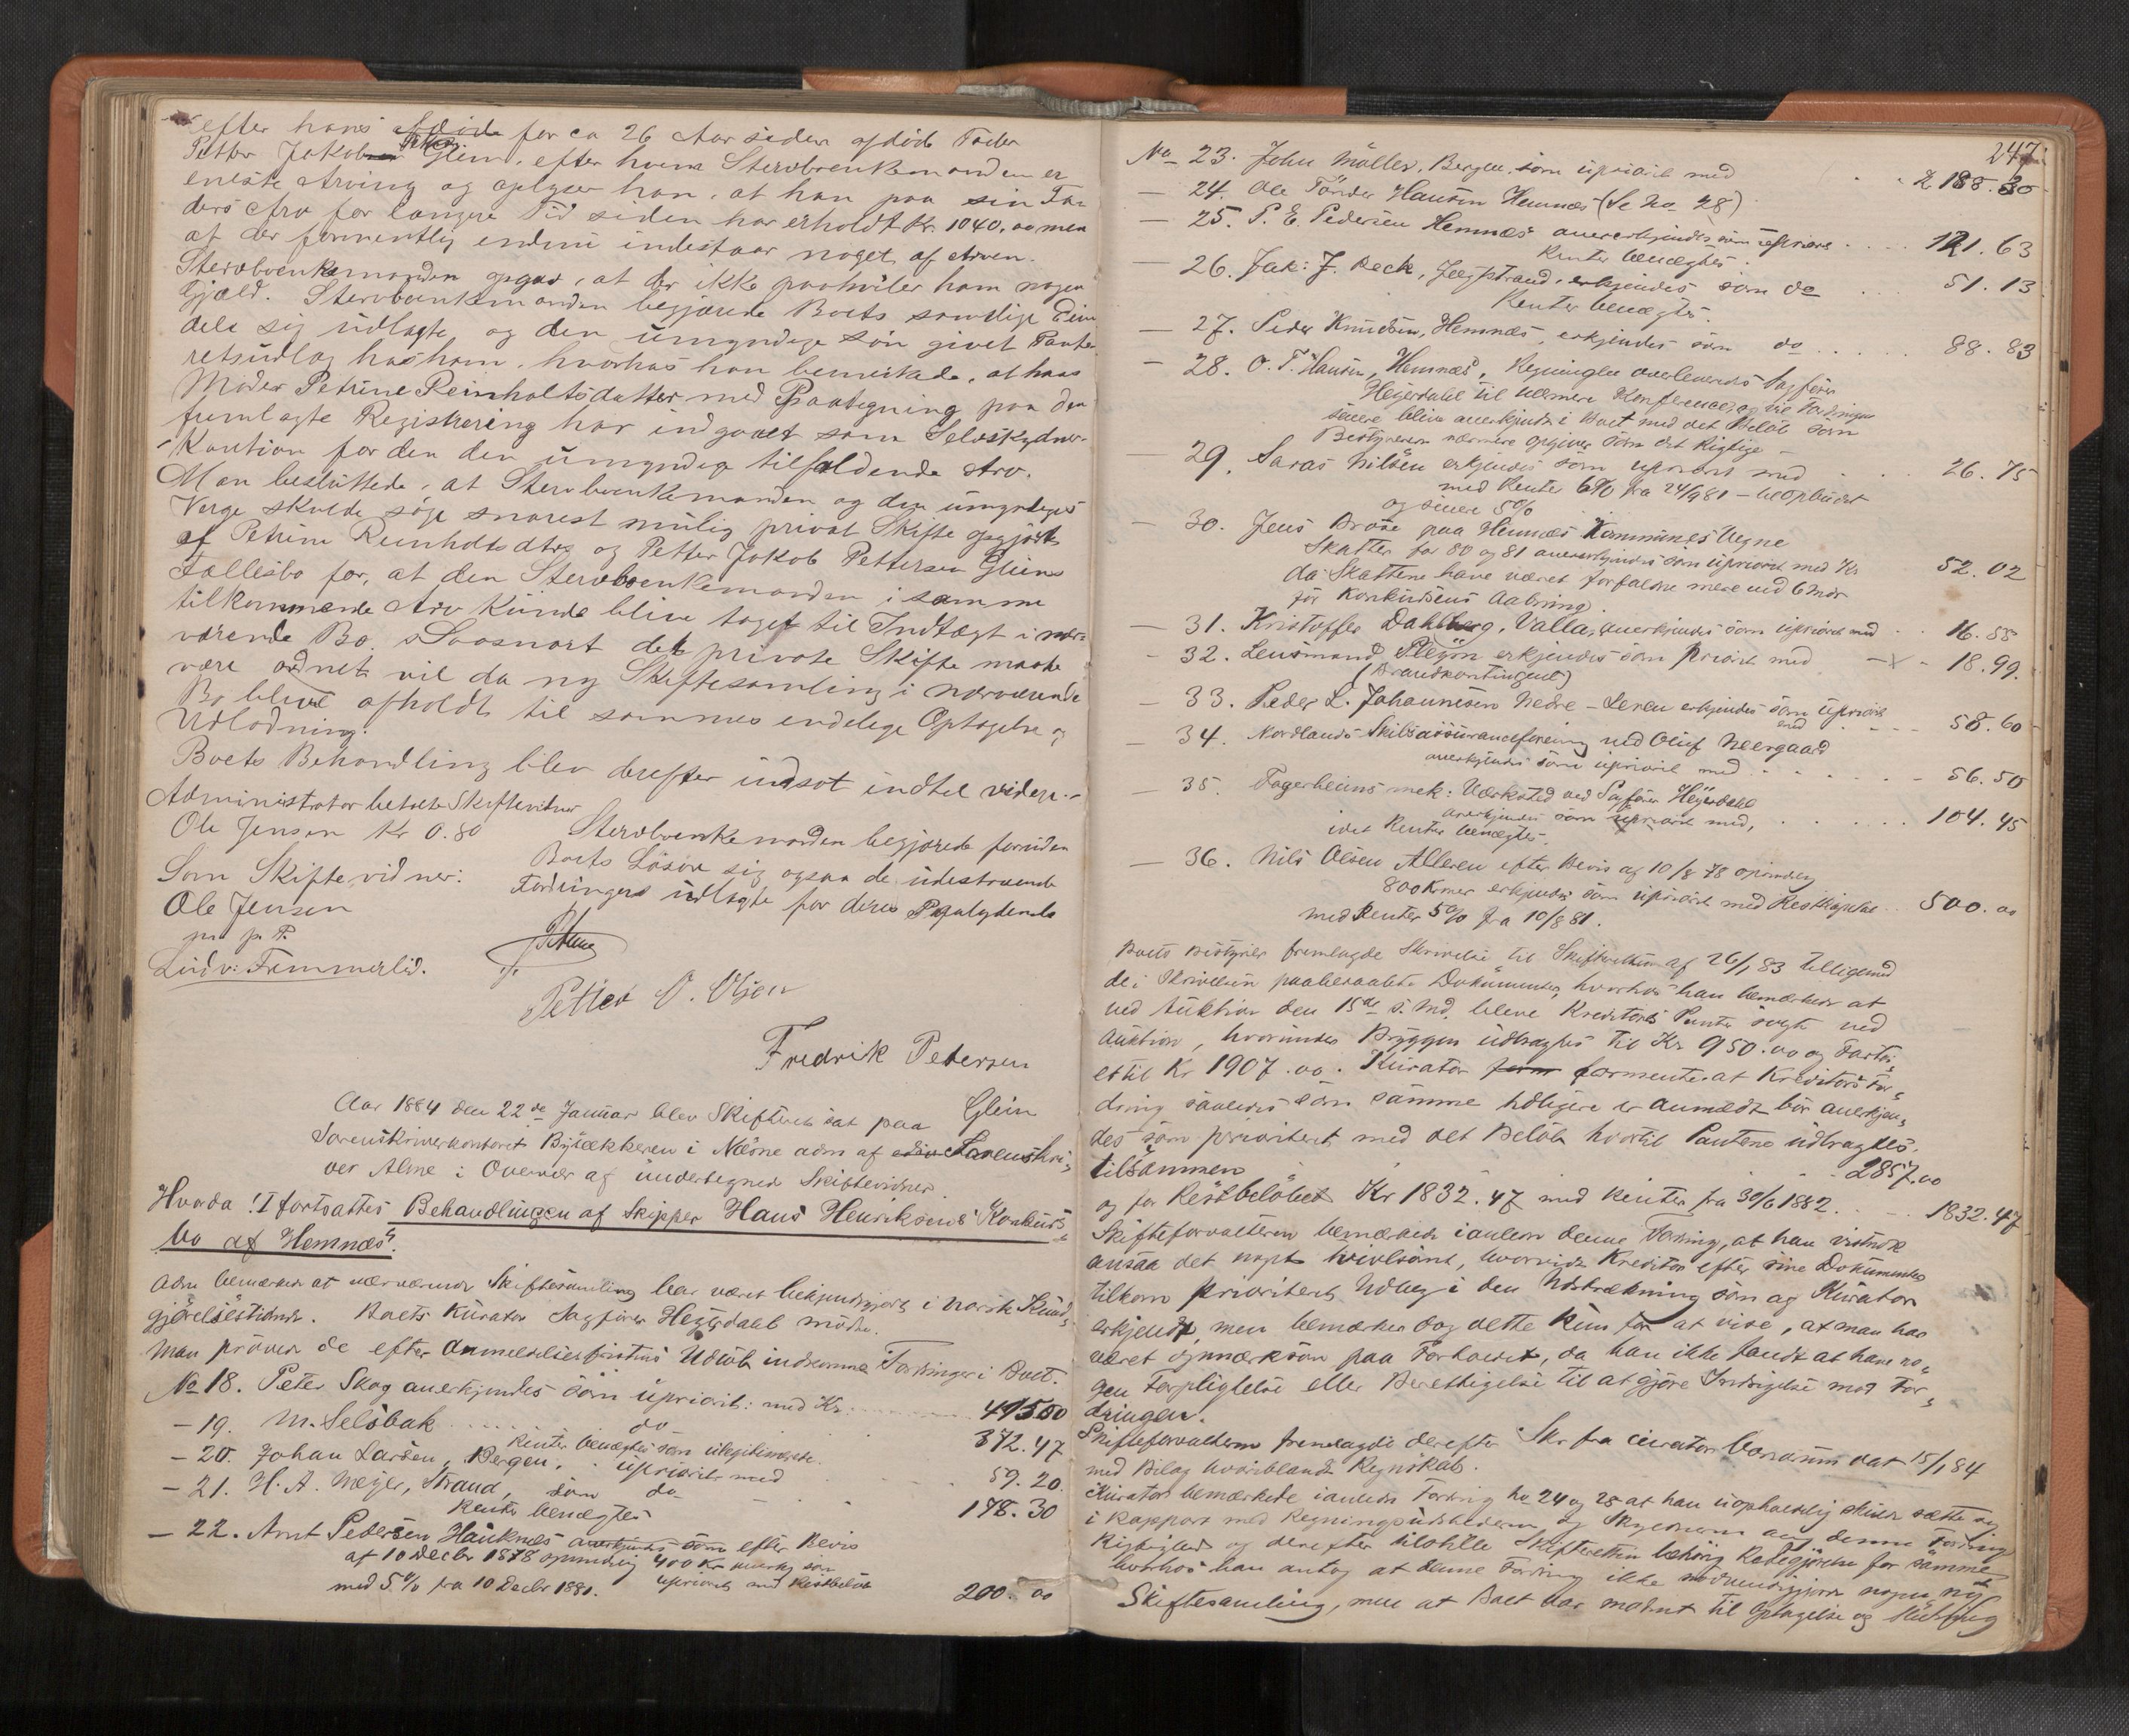 efter hans for ca 26 Aar siden afdøde Fader
Petter Jakob Glein, efter hvem Stervboenkemanden er
eneste Arving og oplyser han, at han paa sin Fa-
ders Arv for længere Tid siden har erholdt Kr. 1040,00 men
at der formentlig endnu indestaar noget af Arven.
Stervboenkemanden opgav, at der ikke paahviler ham nogen
Gjæld. Stervboenkemanden begjærede Boets samtlige Eien
dele sig udlagte og den umyndige Søn givet Pante-
retsudlæg hos ham, hvorhos han bemærkede, at hans
Moder Petrine Reinholtsdatter med Paategning paa den
fremlagte Registrering har indgaaet som Selvskyldner-
Kaution for den den umyndige tilfaldende Arv.
Man besluttede, at Stervboenkemanden og den umyndiges
Verge skulde søge snarest mulig privat Skifte opgjort
af Petrine Reinholdtsdtrs og Petter Jakob Pettersen Gleins
Fællesbo for, at den Stervboenkemanden i samme
tilkommende Arv kunde blive taget til Indtægt i nær-
værende Bo. Saasnart det private Skifte maate
være ordnet vil da ny Skiftesamling i nærværende
Bo blive afholdt til sammes endelige Optagelse og
Udlodning.
Boets Behandling blev derefter indsat indtil videre.-
Administrator betalte Skiftevidner
Ole Jensen Kr 0.80
Stervboenkemanden begjærede foruden
Boets Løsøre sig ogsaa de udestaaende
Fordringer udlagte for deres Paalydende
Som Skiftevidner:
Ole Jensen
m p. P.
Ludv: Fremmerlid.
Petter O. Olsen
Fredrik Petersen
Glein
Aar 1884 den 22de Januar blev Skifteret sat paa
Sorenskriverkontoret Bytækkeren i Næsne adm af Sorenskri-
ver Alme i Overvær af undertegnede Skiftevidner.
Hvorda! I fortsattes Behandlingen af Skipper Hans Henriksens Konkurs
bo af Hemnæs.
Adm bemærkede at nærværende Skiftesamling har været bekjendtgjort i Norsk Kund-
gjørelsestidende. Boets Kurator Sagfører Heyerdahl mødte.
Man prøvede de efter Anmeldelsesfristens Udløb indkomne Fordringer i Boet.
No 18. Peter Skog anerkjendes som upriorit: med Kr. 49550
- 19. M. Selsbak do 372.47
Renter benægtes som ulegitimerede.
- 20. Johan Larsen, Bergen, uprioritr med 59.20.
- 21. H. A. Meyer, Strand, som do 178.30
Renter benægtes
- 22. Arnt Pedersen Hauknes anerkjendes som efter Bevis
af 10 Decbr 1878 oprindelig 400 Kr anerkj som
med 5% fra 10 Decbr 1881. uprioritr med Restbeløb 200.00
247.
No 23. John Møller, Bergen, som upriorit med 2188.30
- 24. Ole Tønder Hansen Hemnæs (Se No 28)
- 25. P. E. Pedersen Hemnæs anererkjendes som uprioret 121.63
Renter benægtes.
- 26. Jak: J. Reck, Jægtstrand, erkjendes som do 51.13
Renter benægtes.
- 27. Peder Knudsen, Hemnæs, erkjendes som do 88.83
- 28. O. T. Hansen, Hemnæs, Regningen overleveres Sagfører
Heyerdahl til nærmere Konference, og vil Fordringen
senere blive anerkjendt i Boet med det Beløb som
Bestyreren nærmere opgiver som det Rigtige -
29. Saras Nilsen erkjendes som uprioret med 26.75
med Renter 6% fra 24/9 81 - til Opbudet
og senere 5%
- 30. Jens Brose paa Hemnæs Kommunes Vegne
Skatter for 80 og 81 anererkjendes som uprioret med Kr 52.02
da Skattene have været forfaldne mere end 6 Mdr
før Konkursens Aabning.
- 31. Kristoffer Dahlberg, Valla, anerkjendes som uprioret med 16.58
- 32. Lensmand Pleym erkjendes som priorit med 18.99.
(Brandkontingent)
- 33. Peder L. Johannesen Nedre-Leren erkjendes som uprioret
med 58.60
- 34. Nordlands Skibsassuranceforening ved Oluf Neergaard
anerkjendes som uprioret med 56.50
- 35. Fagerheims mek: Værksted ved Sagfører Heyerdahl
anerkjendes som uprioret med, 104.45
idet Renter benægtes.
- 36. Nils Olsen Alleren efter Bevis af 10/8 78 oprindelig
800 Kroner erkjendes som uprioret med Restkapital 500.00
med Renter 5% fra 10/8 81.
Boets Bestyrer fremlagde Skrivelse til Skifteretten af 26/1 83 tilligemed
de i Skrivelsen paaberaabte Dokumenter, hvorhos han bemærkede at
ved Auktion den 15de s. Md. bleve Kreditors Panter solgte ved
Auktion, hvorunder Bryggen udbragtes til Kr 950.00 og Fartøi-
et til Kr 1907.00. Kurator formente at Kreditors For-
dring saaledes som samme tidligere er anmeldt bør anerkjen-
des som prioriteret med det Beløb hvortil Pantene udbragtes.
tilsammen 2857.00
og for Restbeløbet Kr 1832.47 med Renter fra 30/6 1882. 1832.47
Skifteforvalteren bemærkede i anledn denne Fordring, at han vistnok
ansaa det noget tvivlsomt, hvorvidt Kreditor efter sine Dokumenter
tilkom prioriteret Udlæg i den Udstrækning som af Kurator
erkjendt, men bemærker dog dette kun for at vise, at man har
været opmærksom paa Forholdet, da han ikke fandt at have no-
gen Forpligtelse eller Berettigelse til at gjøre Indsigelse mod For-
dringen.
Skifteforvalteren fremlagde derefter Skr fra curator bonorum dat 15/1 84
med Bilag hvoriblandt Regnskab.
Kurator bemærkede i anledn Fordring No 24 og 28 at han uopholdelig skulde sætte sig
i Rapport med Regningsudstederen og Skyldneren ang denne Fordrings
Rigtighed og derefter tilstille Skifteretten behørig Redegjørelse for samme
hvorhos han antog at denne Fordring ikke nødvendiggjorde nogen ny
Skiftesamling, men at Boet var modent til Optagelse og Slutning